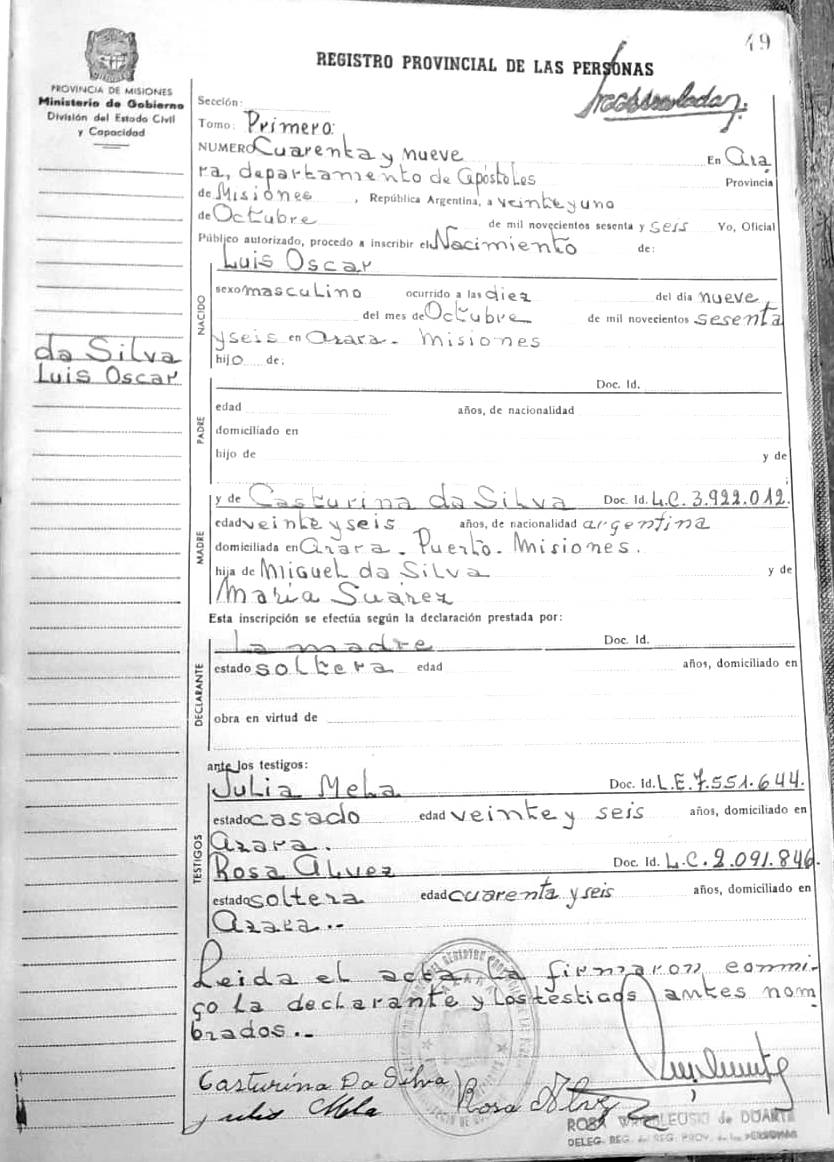 49
REGISTRO PROVINCIAL DE LAS PERSONAS
PROVINCIA DE MISIONES
Ministerio de Gobierno
División del Estado Civil
y Capacidad
Sección:
Tomo: Primero:
NUMERO Cuarenta y nueve En Aza
ra, departamento de Apóstoles Provincia
de Misiones, República Argentina, a veinte y uno
de Octubre de mil novecientos sesenta y seis Yo, Oficial
Público autorizado, procedo a inscribir el Nacimiento de:
NACIDO
Luis Oscar
sexo masculino ocurrido a las diez del día nueve
del mes de Octubre de mil novecientos sesenta
y seis en Azara - Misiones
hijo de:
da Silva
Luis Oscar
PADRE
Doc. Id.
edad años, de nacionalidad
domiciliado en
hijo de y de
;
MADRE
y de Casturina da Silva Doc. Id. L.C. 3.922.012.
edad veinte y seis años, de nacionalidad argentina
domiciliada en Azara - Puerto - Misiones.
hija de Miguel da Silva y de
María Suárez
Esta inscripción se efectúa según la declaración prestada por:
DECLARANTE
La madre Doc. Id.
estado soltera edad años, domiciliado en
obra en virtud de
ante los testigos:
TESTIGOS
Julia Mela Doc. Id. L.E. 7.551.644.
estado casado edad veinte y seis años, domiciliado en
Azara.
Rosa Alvez Doc. Id. L.C. 2.091.846.
estado soltera edad cuarenta y seis años, domiciliado en
Azara.--
Leida el acta, la firmaron commi-
go la declarante y los testigos antes nom
brados.--
Casturina Da Silva
Julio Mela Rosa Alvez
ROSA de DUARTE
DELEG. REG. del REG. PROV. de las PERSONAS